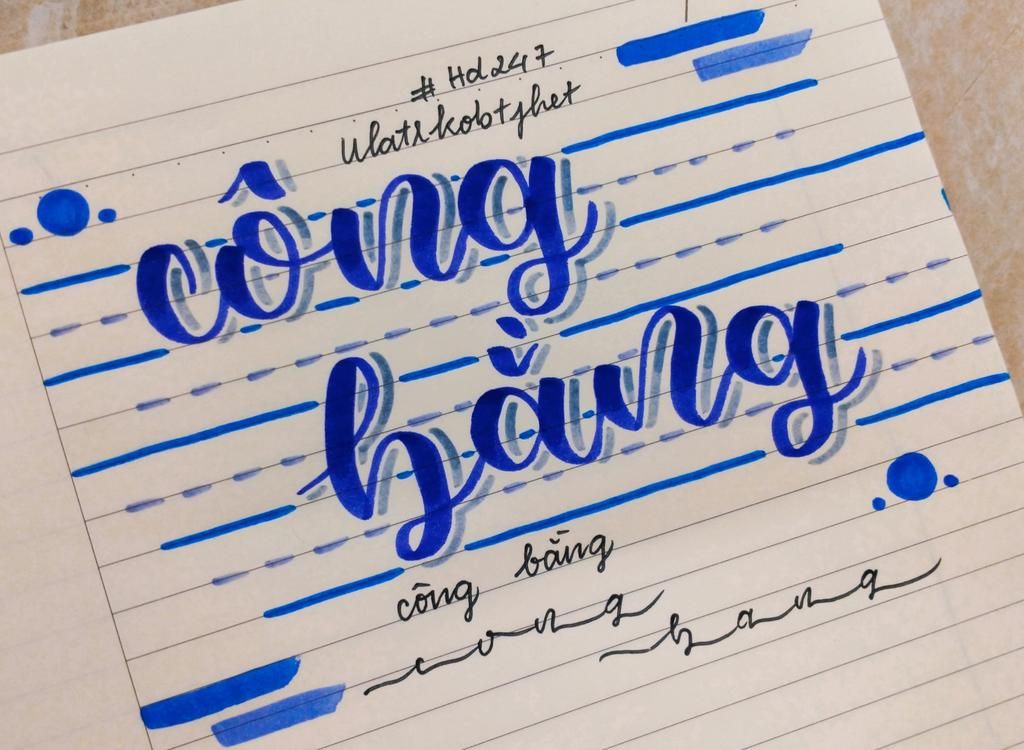 # Hd247
Ulatikobtjhet
công
bằng
công bằng
cong bang